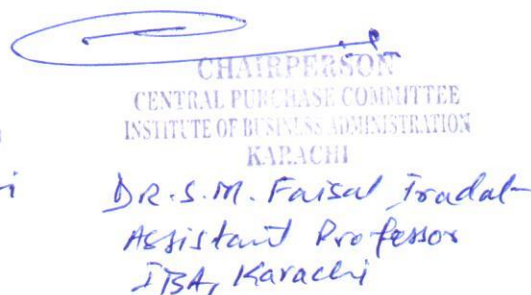 CHAIRPERSON
CENTRAL PURCHASE COMMITTEE
INSTITUTE OF BUSINESS ADMINISTRATION
KARACHI
i DR. S. M. Faisal Iradat
Assistant Professor
IBA, Karachi